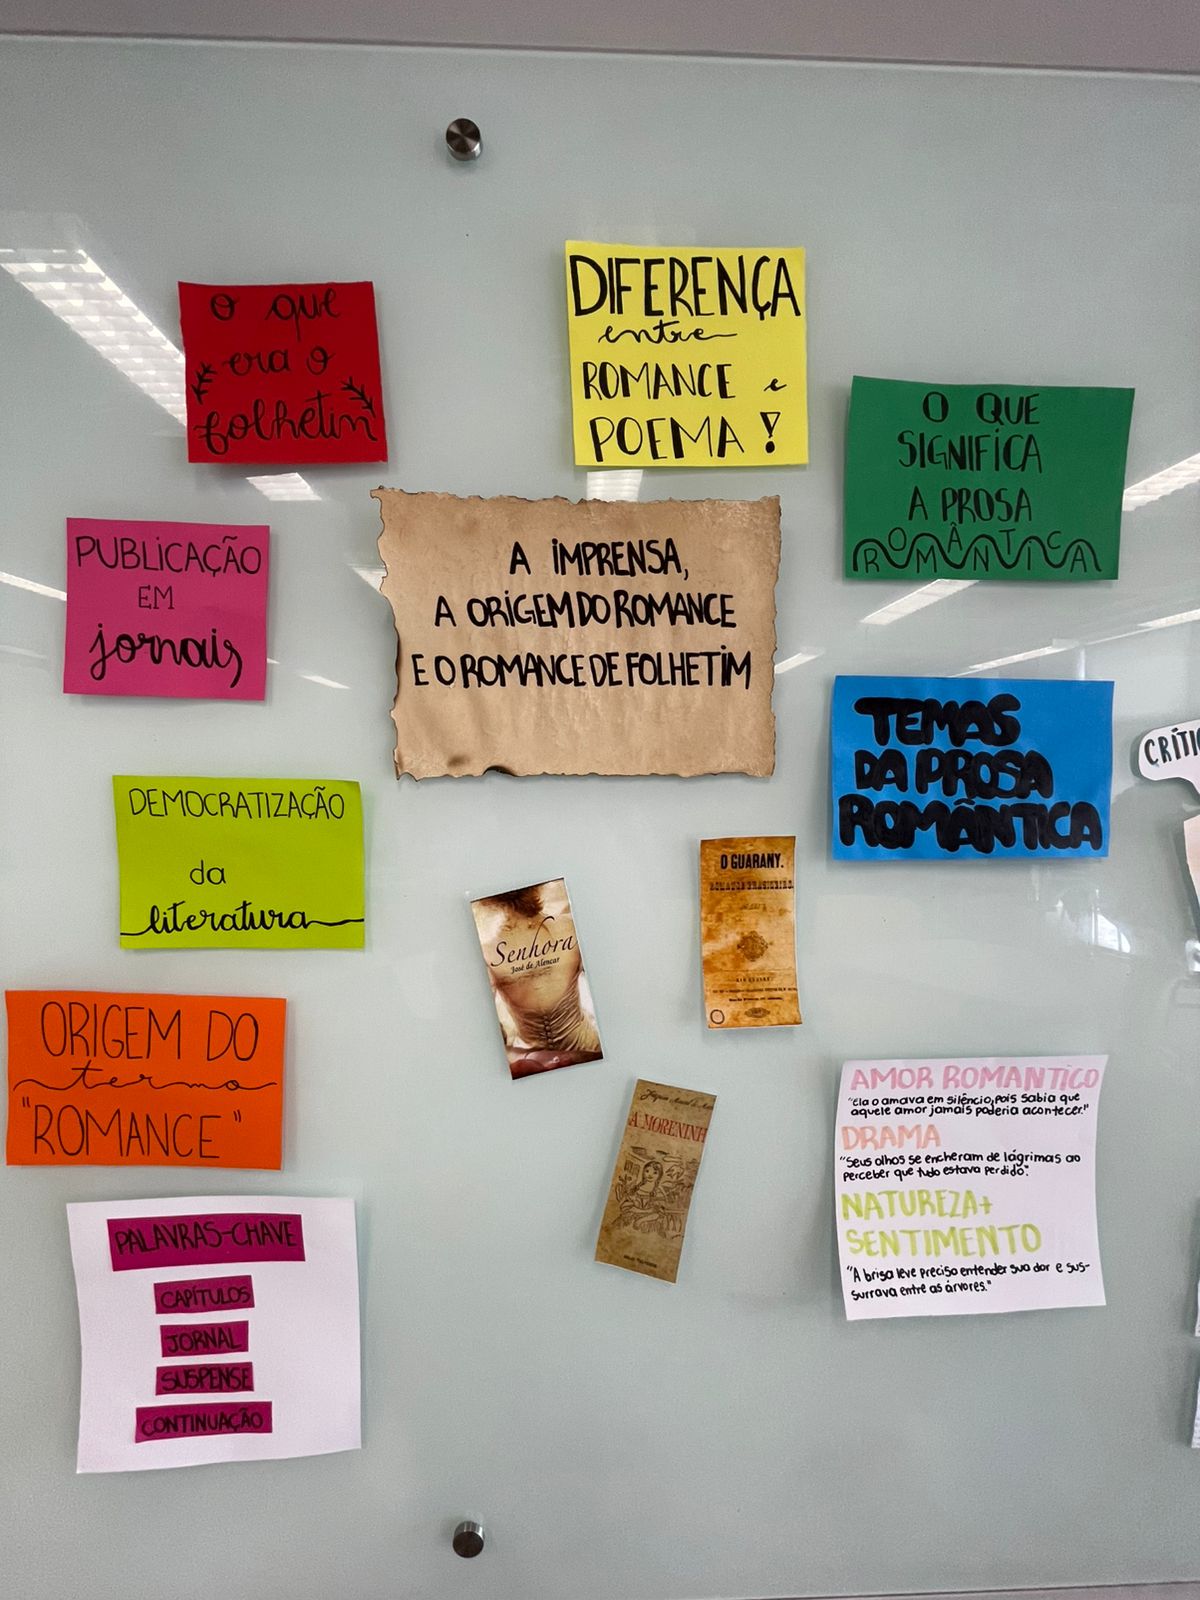 O que
era o
folhetin
DIFERENÇA
entre
ROMANCE e
POEMA!
O QUE
SIGNIFICA
A PROSA
ROMÂNTICA
PUBLICAÇÃO
EM
jornais
A IMPRENSA,
A ORIGEM DO ROMANCE
E O ROMANCE DE FOLHETIM
TEMAS
DA PROSA
ROMÂNTICA
CRÍTIC
DEMOCRATIZAÇÃO
da
literatura
O GUARANY.
ROMANCE BRASILEIRO.
Senhora
José de Alencar
ORIGEM DO
termo
"ROMANCE"
A MORENINH
AMOR ROMANTICO
"Ela o amava em silêncio, pois sabia que
aquele amor jamais poderia acontecer!"
DRAMA
"Seus olhos se encheram de lágrimas ao
perceber que tudo estava perdido".
NATUREZA+
SENTIMENTO
"A brisa leve preciso entender sua dor e sus-
surrava entre as árvores."
PALAVRAS-CHAVE
CAPÍTULOS
JORNAL
SUSPENSE
CONTINUAÇÃO